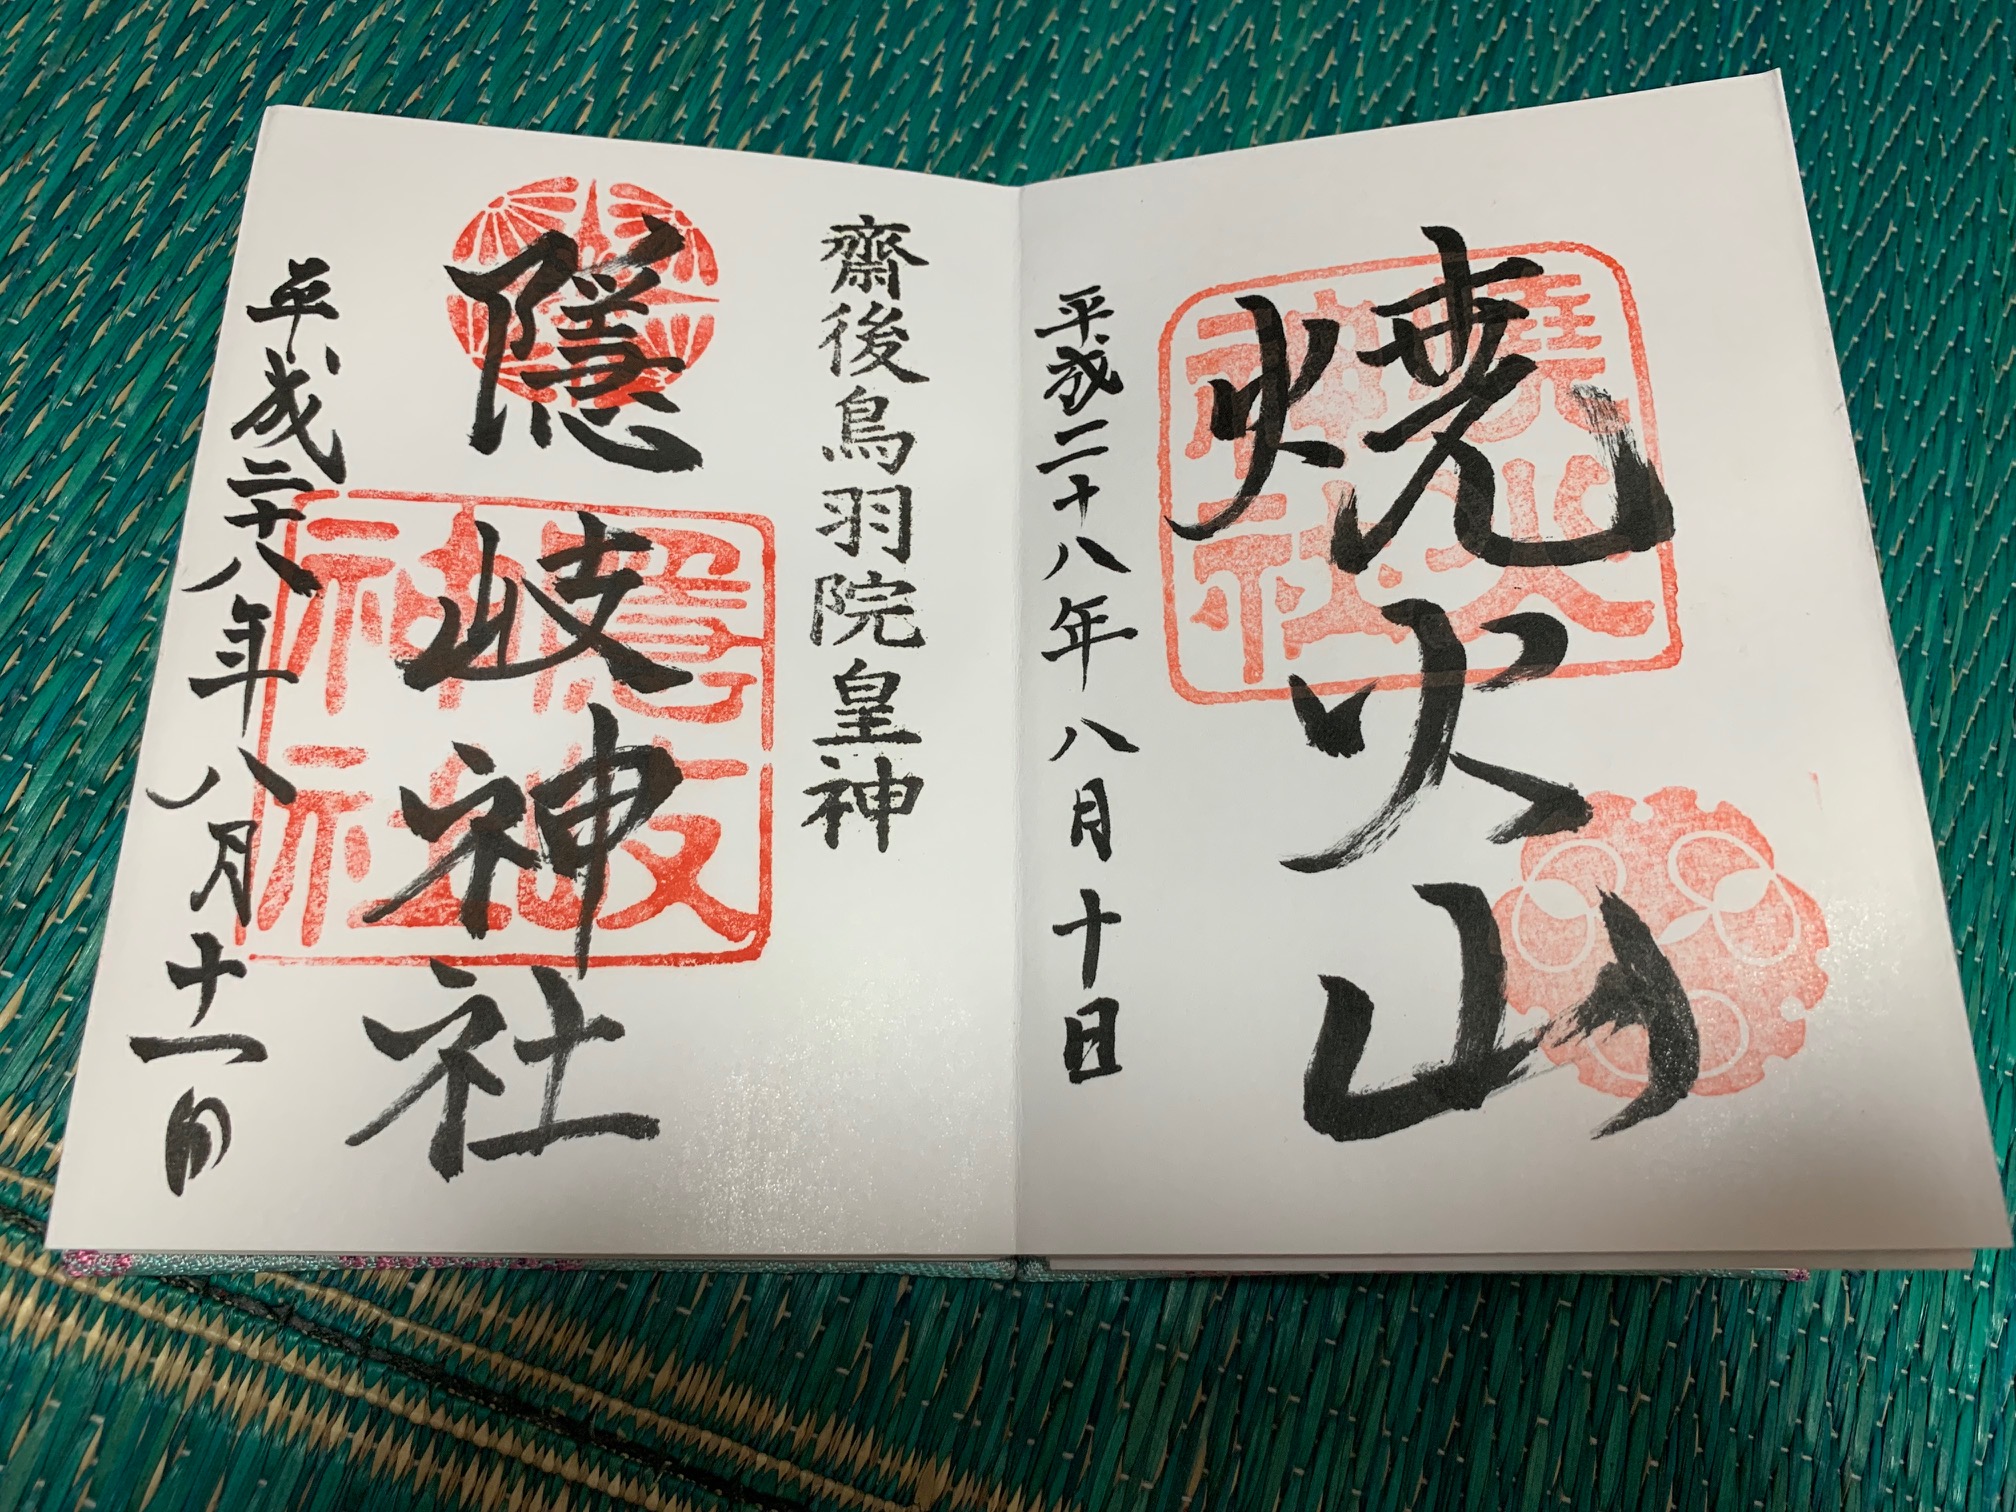 焼火山
焼火神社
平成二十八年八月十日
齋後鳥羽院皇神
隠岐神社
隠岐神社
平成二十八年八月十一日